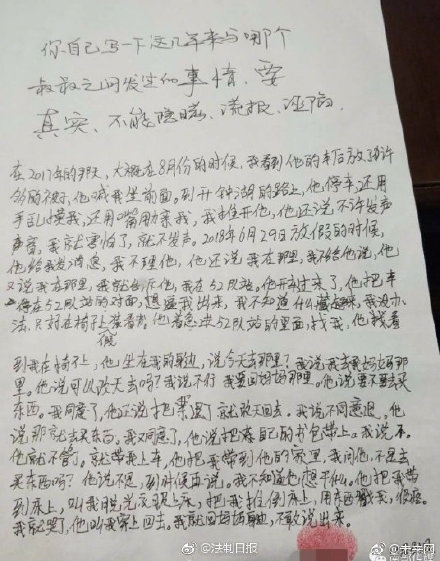 你自己写一下这几年来与哪个
叔叔之间发生的事情，要
真实、不能隐瞒、谎报、
在2017年的那天，大概在8月份的时候，我看到他的车后放了许
多的被子，他喊我坐前面。到开钟湖的路上，他停车，还用
手乱摸我，还用嘴用亲我，我推开他，他还说不许发声
声音，我就害怕了，就不发声。2018年6月29日放假的时候，
他给我发消息，我不理他，他还说我在那里，我不给他说，他
又说我在那里，我就告诉他，我在52队站。他开车过来了，他把车
停在52队站的对面，想逼我出来，我不知道什么，我没办
法，只好在椅子上看着。他着急进52队站的里面，找我，他就看
到我在椅子上，他坐在我的身边，说今天去那里？我说我去我妈妈那
里。他说可以改天去吗？我说不行我要回妈妈那里。他说要不要去买
东西。我同意了，他还说把票退了就改天回去。我说不同意退，他
说那就去买东西。我又同意了，他说把你自己的书包带上。我说不。
他就不管了。就带我上车，他把我带到他的家里，我问他，不是去
买东西吗？他说不急，到时候再说。我不知道他想干什么。他把我带
到床上，叫我脱光衣服上床，把我推倒床上，用东西戳我，很疼。
我就哭了，他叫我穿上回去。我就回妈妈身边，不敢说出来。
@法制日报
@未来网